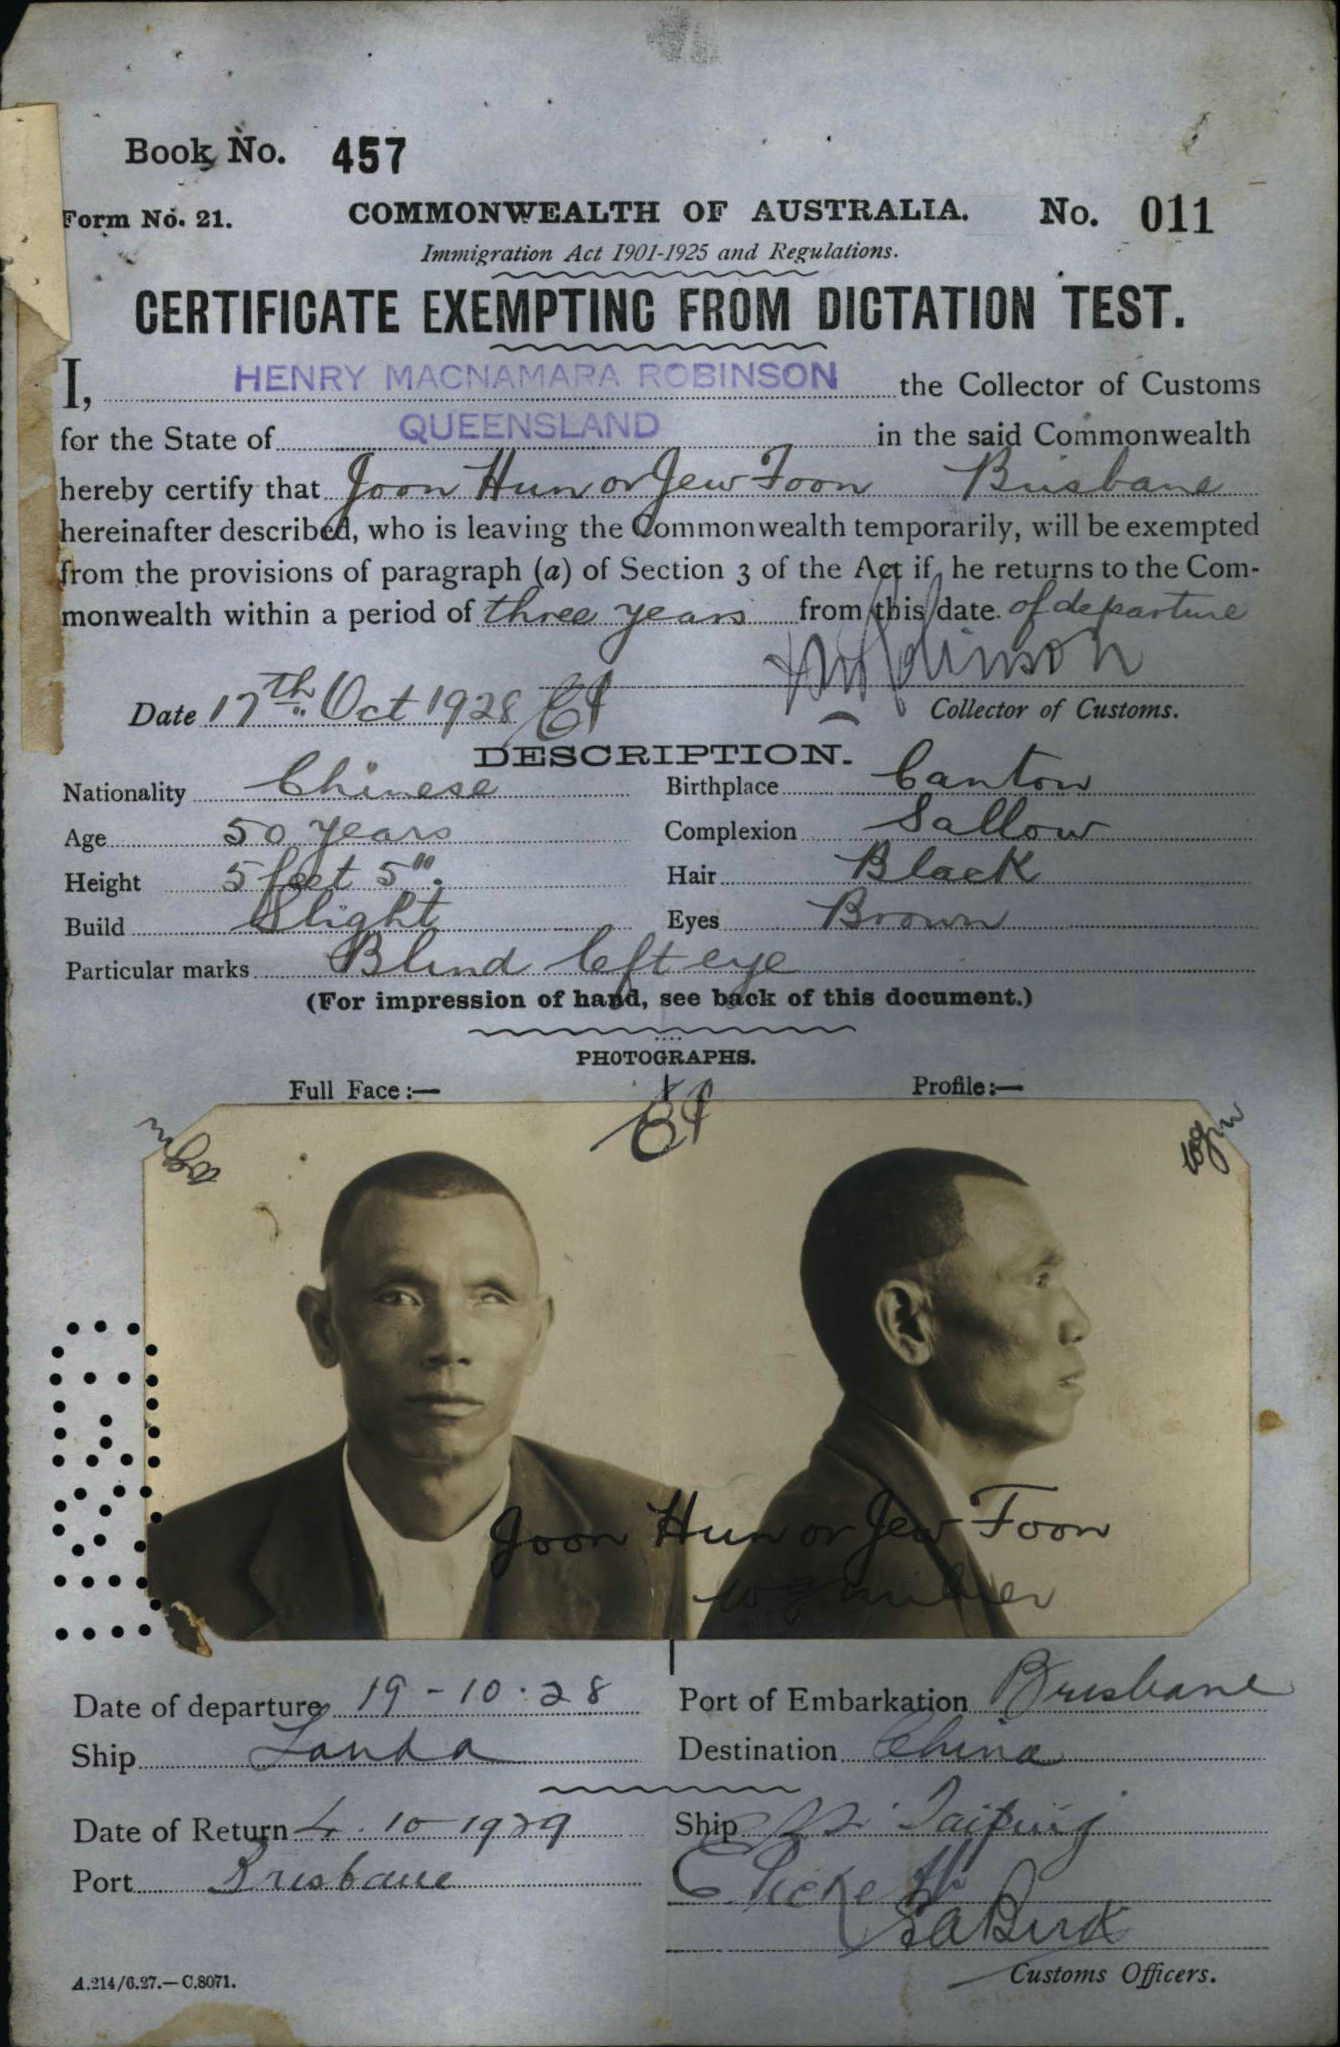 Book No. 457
Form No. 21. COMMONWEALTH OF AUSTRALIA. No. 011
Immigration Act 1901-1925 and Regulations.
CERTIFICATE EXEMPTING FROM DICTATION TEST.
I, HENRY MACNAMARA ROBINSON the Collector of Customs
for the State of QUEENSLAND in the said Commonwealth
hereby certify that Joon Hun or Jew Foon Brisbane
hereinafter described, who is leaving the Commonwealth temporarily, will be exempted
from the provisions of paragraph (a) of Section 3 of the Act if he returns to the Com-
monwealth within a period of three years from this date of departure
Date 17th Oct 1928
Collector of Customs.
DESCRIPTION.
Nationality Chinese Birthplace Canton
Age 50 years Complexion Sallow
Height 5 feet 5". Hair Black
Build Slight Eyes Brown
Particular marks Blind left eye
(For impression of hand, see back of this document.)
PHOTOGRAPHS.
Full Face:— Profile:—
Joon Hun or Jew Foon
Date of departure 19-10-28 Port of Embarkation Brisbane
Ship Destination China
Date of Return 4.10 1929 Ship Taiping
Port Brisbane
Customs Officers.
A.214/6.27.—C.8071.